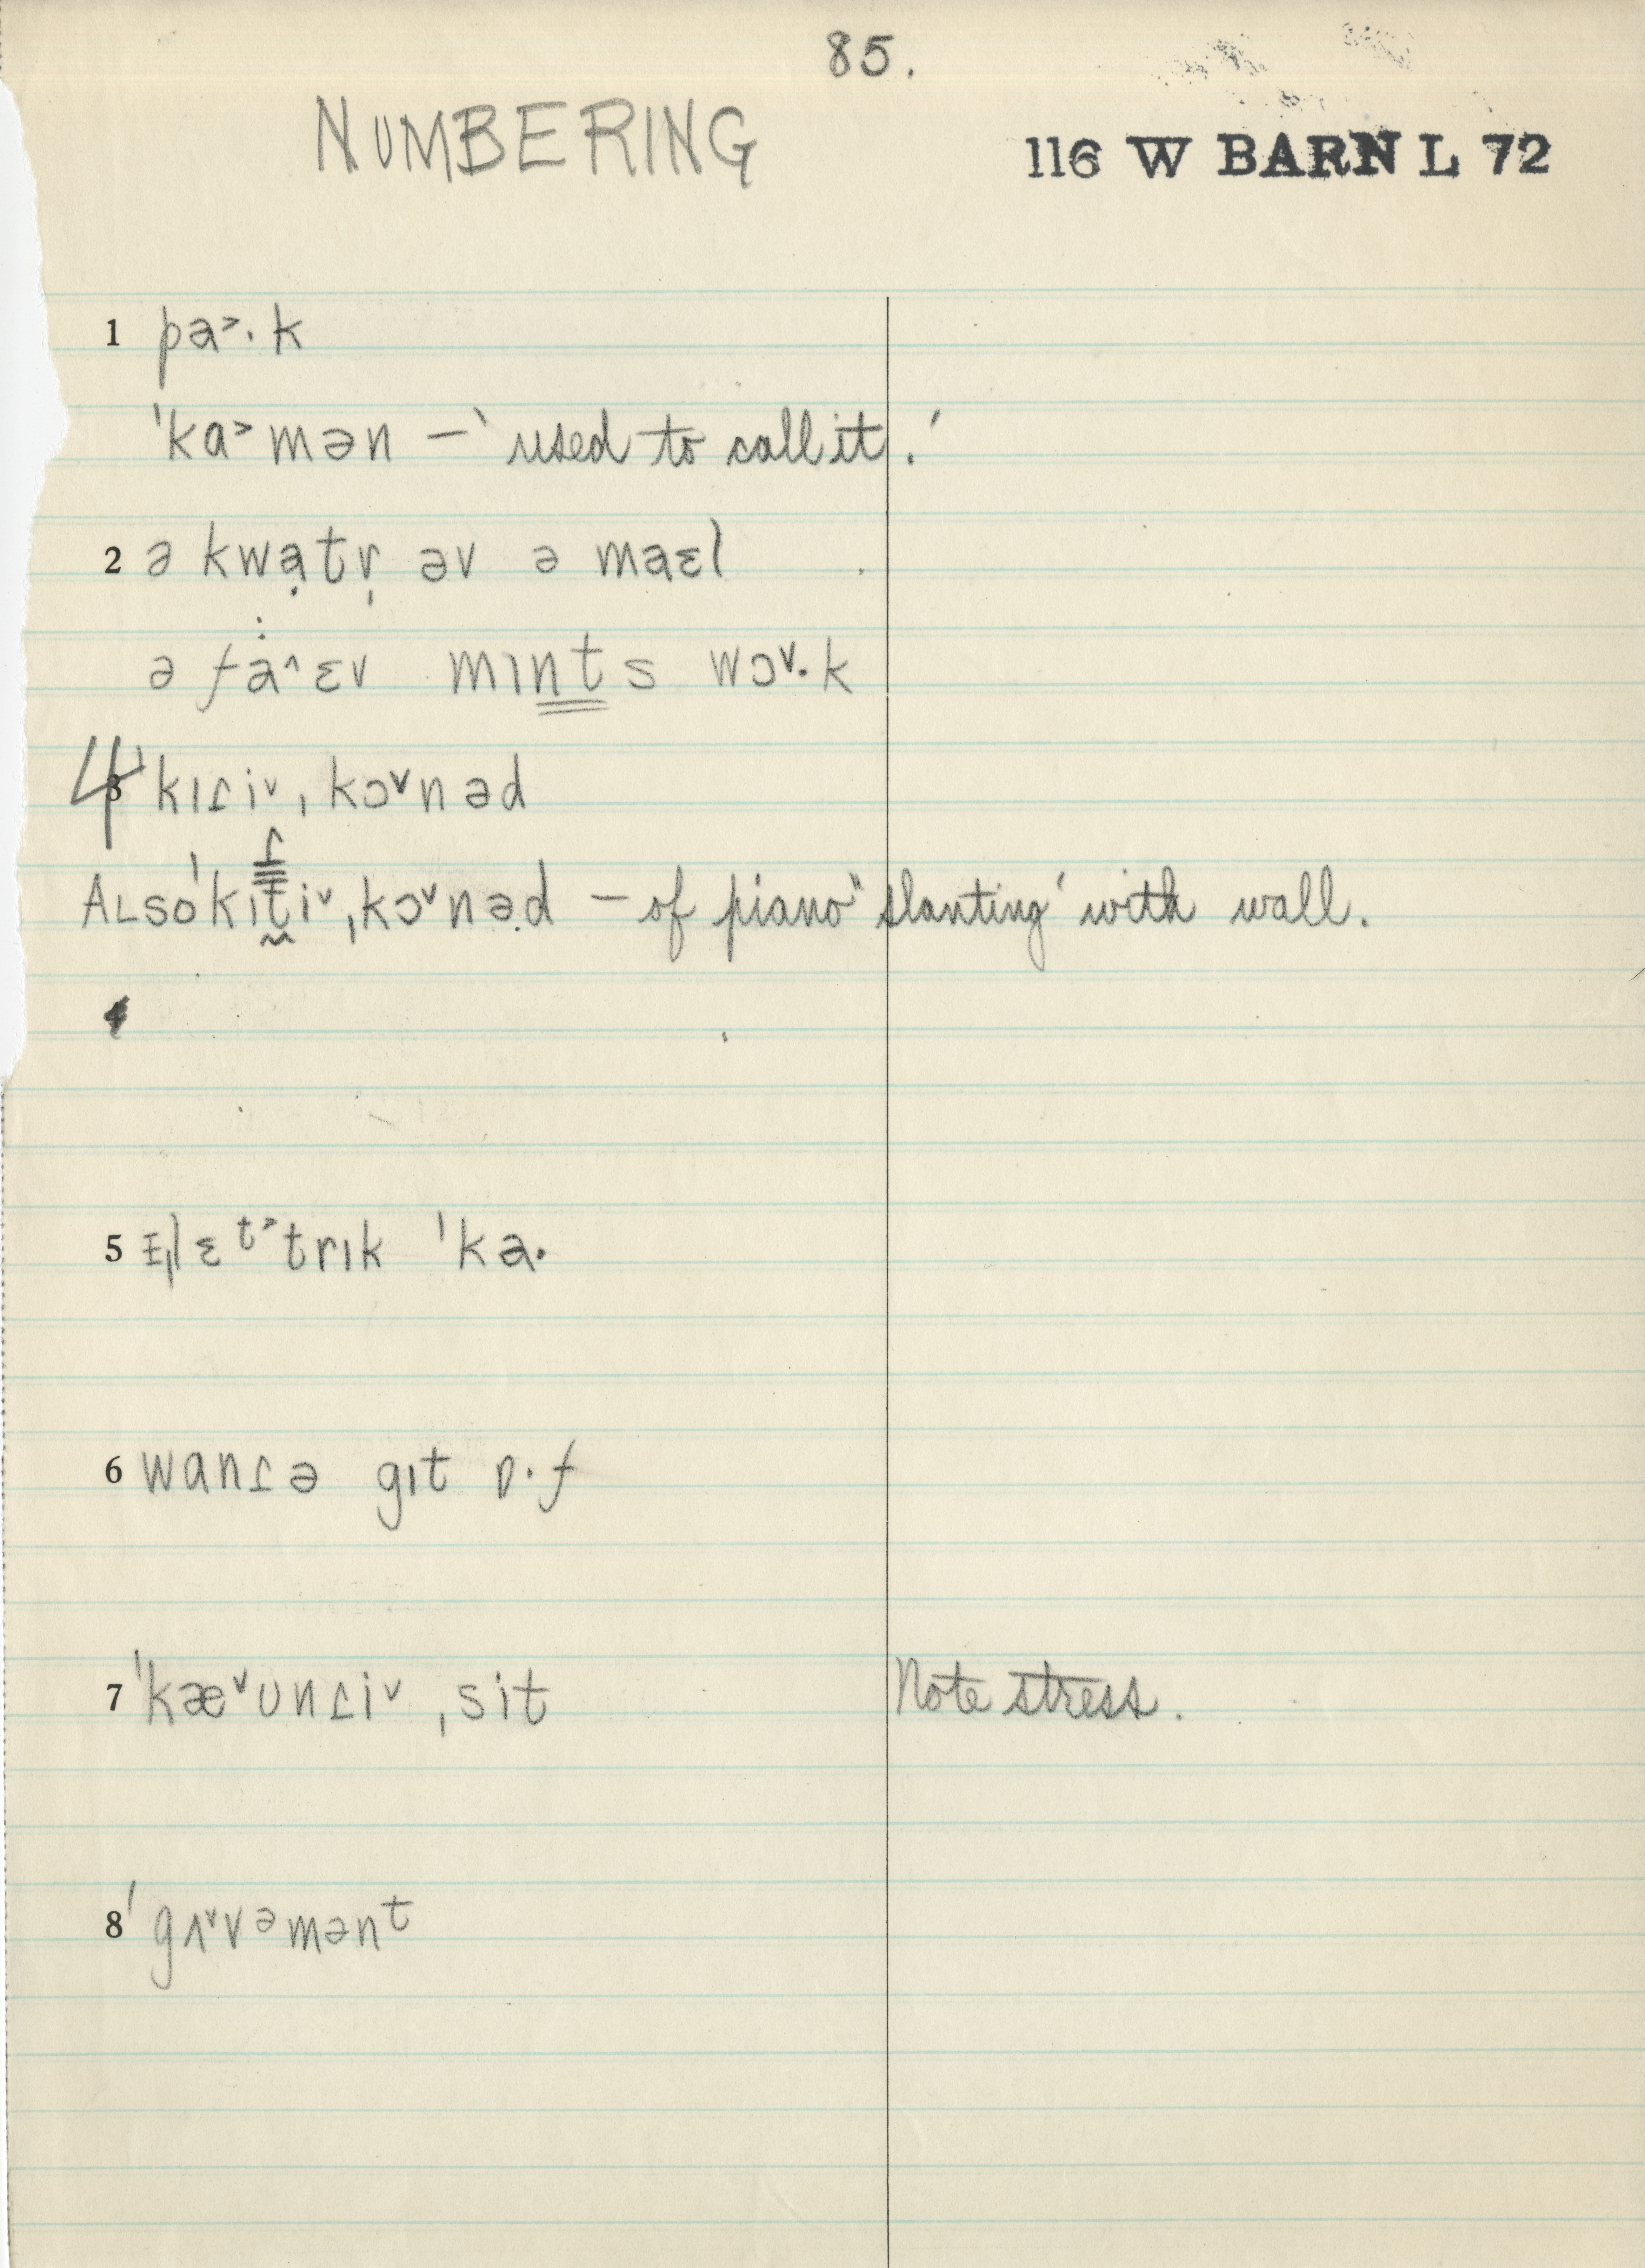 85.
NUMBERING
116 W BARN L 72
1 pa˃·k
ˈka˃mən — ‘used to call it.’
2 ə kwạtr̩ əv ə maɛl
ə fȧ˄ɛv mɪnts wɔ˅·k
4 ˈkɪɾi˅ˌkɔ˅nəd
ALSO ˈkɪt̬i˅ˌkɔ˅nə̣d — of piano "slanting' with wall.
5 ɛt˃trɪk ˈka·
6 wanɾə gɪt ɒ·f
7 ˈkæ˅ʊnɾi˅ ˌsit Note stress.
8 ˈgʌ˅vᵊmənᵗ